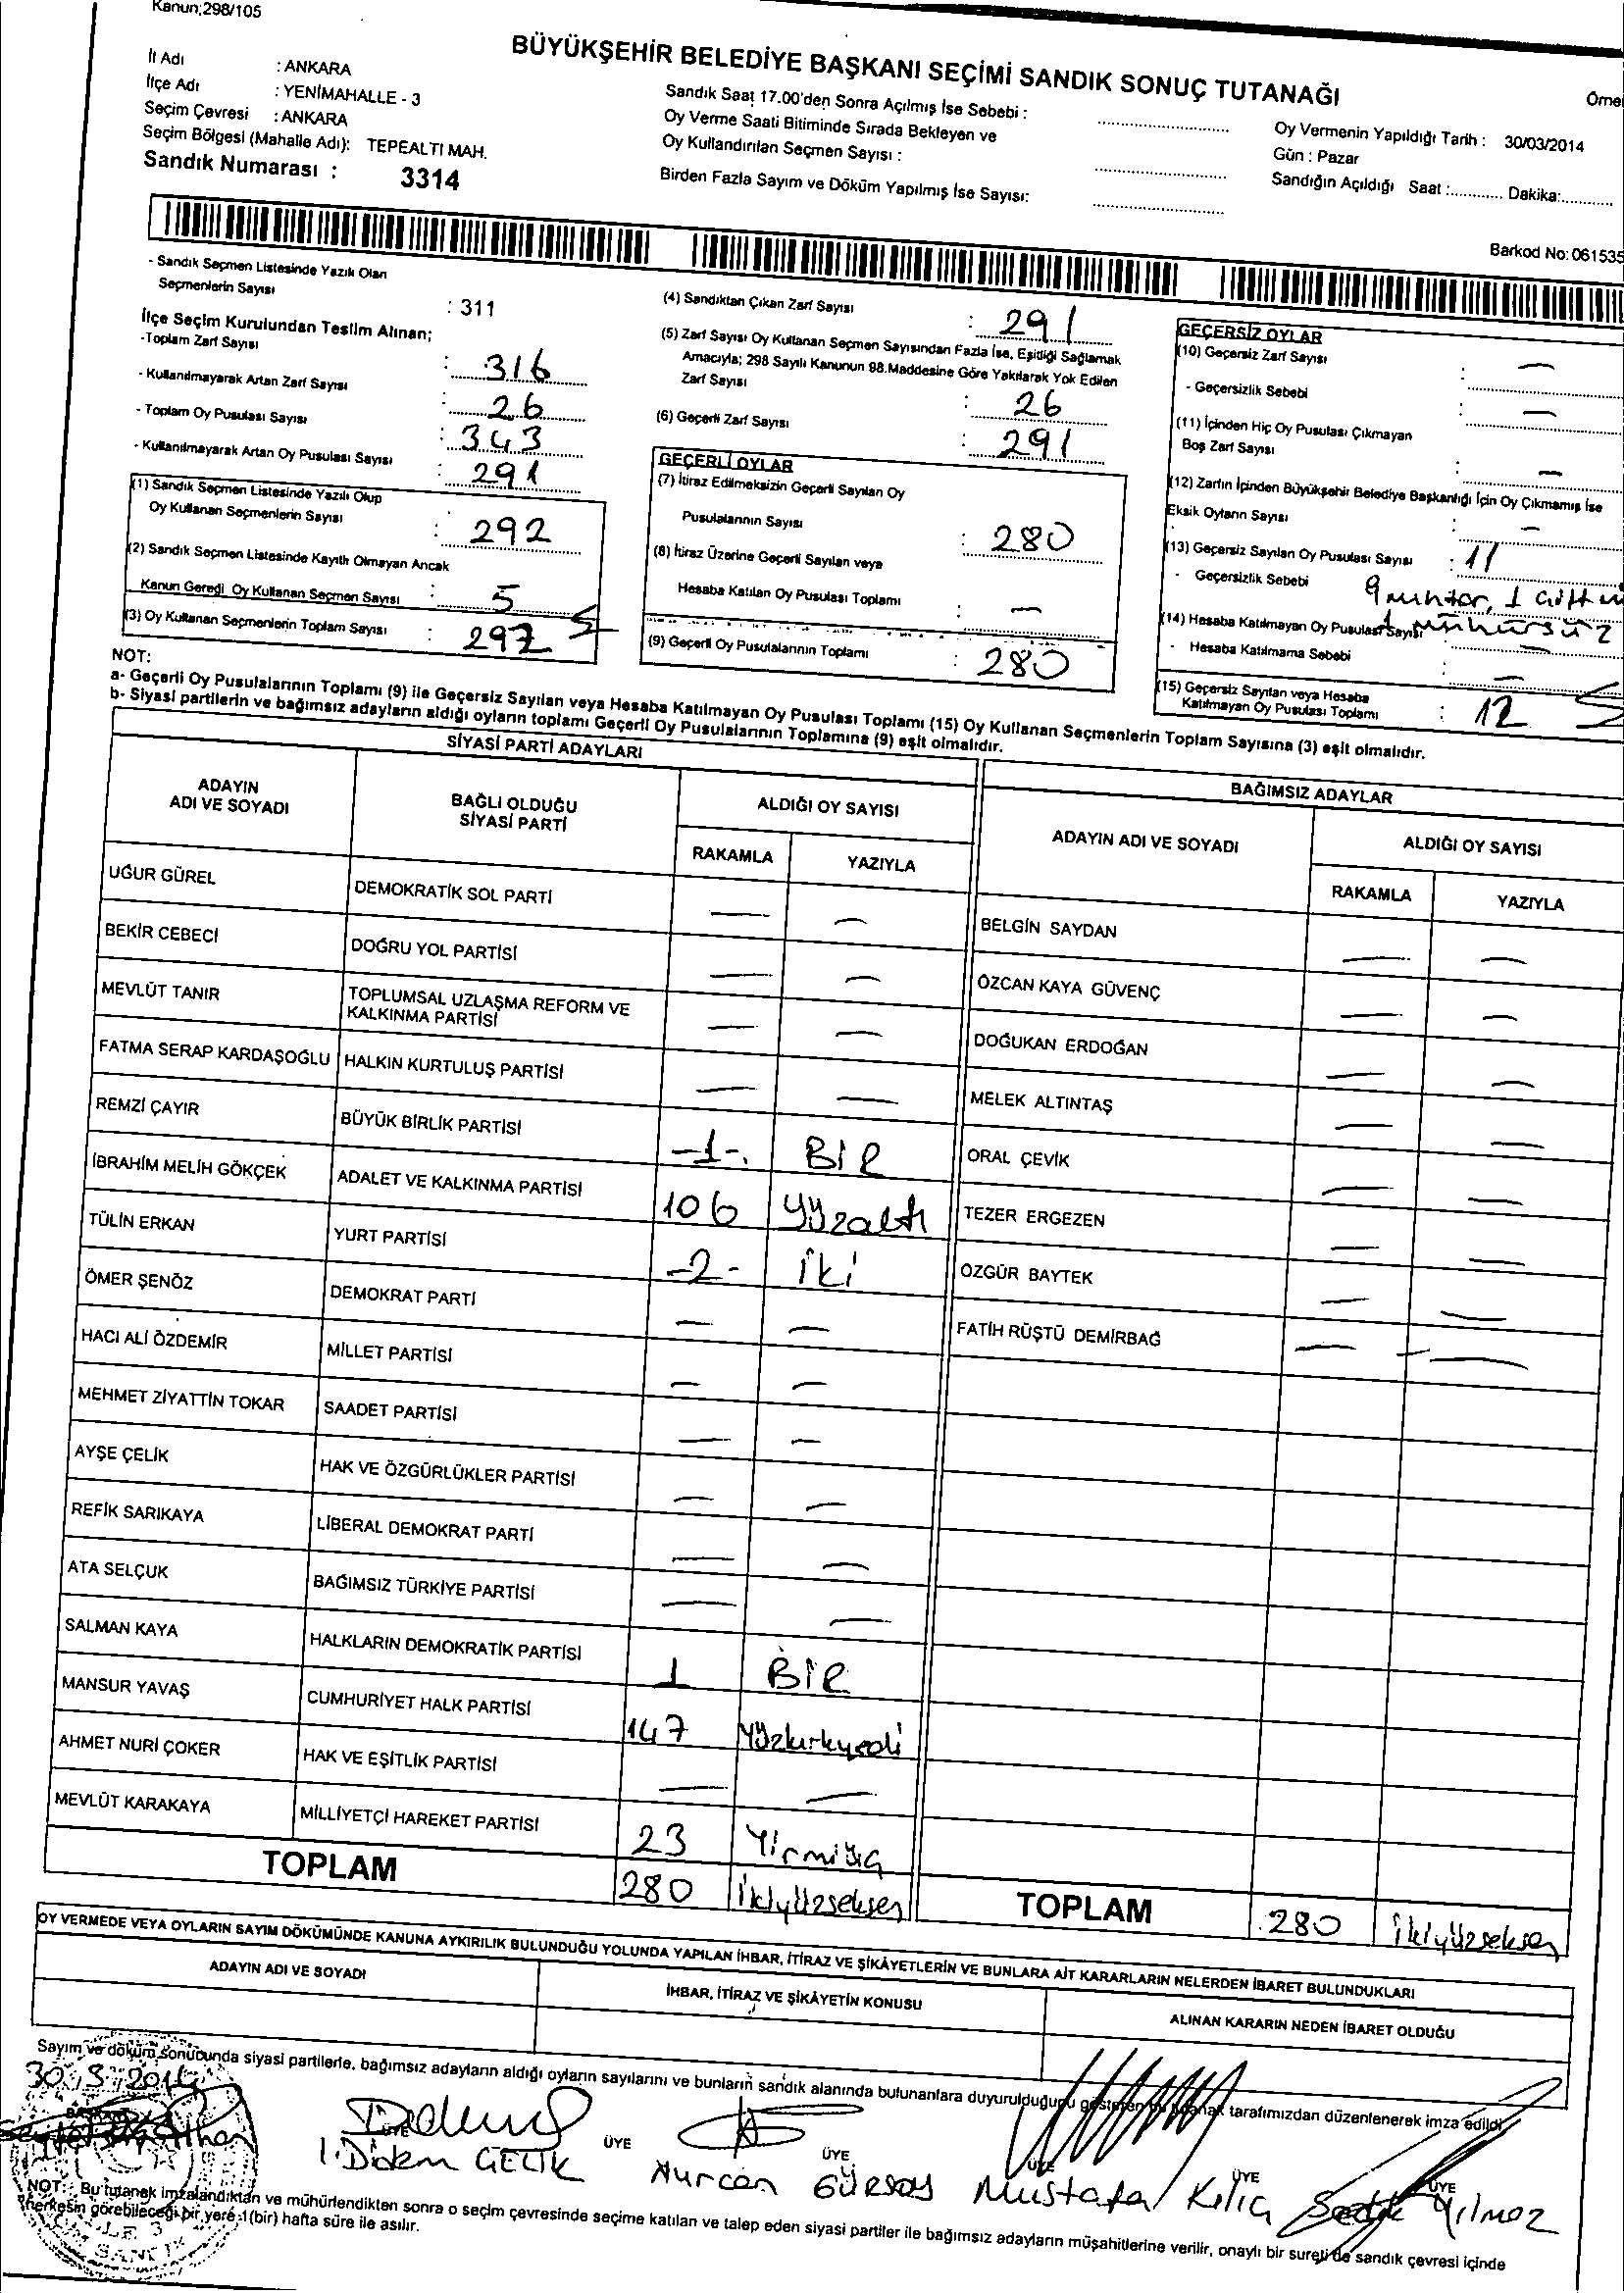 Kanun;298/105
BÜYÜKŞEHİR BELEDİYE BAŞKANI SEÇİMİ SANDIK SONUÇ TUTANAĞI
İl Adı : ANKARA
İlçe Adı : YENİMAHALLE - 3
Seçim Çevresi : ANKARA
Seçim Bölgesi (Mahalle Adı): TEPEALTI MAH.
Sandık Numarası : 3314
Sandık Saat 17.00'den Sonra Açılmış İse Sebebi :
Oy Verme Saati Bitiminde Sırada Bekleyen ve
Oy Kullandırılan Seçmen Sayısı :
Birden Fazla Sayım ve Döküm Yapılmış İse Sayısı:
Oy Vermenin Yapıldığı Tarih : 30/03/2014
Gün : Pazar
Sandığın Açıldığı Saat :............ Dakika:............
Barkod No: 061535
- Sandık Seçmen Listesinde Yazılı Olan
Seçmenlerin Sayısı : 311
İlçe Seçim Kurulundan Teslim Alınan;
-Toplam Zarf Sayısı : 316
- Kullanılmayarak Artan Zarf Sayısı : 26
- Toplam Oy Pusulası Sayısı : 343
- Kullanılmayarak Artan Oy Pusulası Sayısı : 291
(1) Sandık Seçmen Listesinde Yazılı Olup
Oy Kullanan Seçmenlerin Sayısı : 292
(2) Sandık Seçmen Listesinde Kayıtlı Olmayan Ancak
Kanun Geredi Oy Kullanan Seçmen Sayısı : 5
(3) Oy Kullanan Seçmenlerin Toplam Sayısı : 297
(4) Sandıktan Çıkan Zarf Sayısı : 291
(5) Zarf Sayısı Oy Kullanan Seçmen Sayısından Fazla İse, Eşitliği Sağlamak
Amacıyla; 298 Sayılı Kanunun 98.Maddesine Göre Yakılarak Yok Edilen
Zarf Sayısı : 26
(6) Geçerli Zarf Sayısı : 291
GEÇERLİ OYLAR
(7) İtiraz Edilmeksizin Geçerli Sayılan Oy
Pusulalarının Sayısı : 280
(8) İtiraz Üzerine Geçerli Sayılan veya
Hesaba Katılan Oy Pusulası Toplamı : —
(9) Geçerli Oy Pusulalarının Toplamı : 280
GEÇERSİZ OYLAR
(10) Geçersiz Zarf Sayısı : —
- Geçersizlik Sebebi : —
(11) İçinden Hiç Oy Pusulası Çıkmayan
Boş Zarf Sayısı : —
(12) Zarfın İçinden Büyükşehir Belediye Başkanlığı İçin Oy Çıkmamış İse
Eksik Oyların Sayısı : —
(13) Geçersiz Sayılan Oy Pusulası Sayısı : 11
- Geçersizlik Sebebi
1 mühürsüz
(14) Hesaba Katılmayan Oy Pusulası Sayısı : —
- Hesaba Katılmama Sebebi : —
(15) Geçersiz Sayılan veya Hesaba
Katılmayan Oy Pusulası Toplamı : 12
NOT:
a- Geçerli Oy Pusulalarının Toplamı (9) ile Geçersiz Sayılan veya Hesaba Katılmayan Oy Pusulası Toplamı (15) Oy Kullanan Seçmenlerin Toplam Sayısına (3) eşit olmalıdır.
b- Siyasi partilerin ve bağımsız adayların aldığı oyların toplamı Geçerli Oy Pusulalarının Toplamına (9) eşit olmalıdır.
SİYASİ PARTİ ADAYLARI
ADAYIN ADI VE SOYADI BAĞLI OLDUĞU SİYASİ PARTİ ALDIĞI OY SAYISI
RAKAMLA YAZIYLA
UĞUR GÜREL DEMOKRATİK SOL PARTİ — —
BEKİR CEBECİ DOĞRU YOL PARTİSİ — —
MEVLÜT TANIR TOPLUMSAL UZLAŞMA REFORM VE KALKINMA PARTİSİ — —
FATMA SERAP KARDAŞOĞLU HALKIN KURTULUŞ PARTİSİ — —
REMZİ ÇAYIR BÜYÜK BİRLİK PARTİSİ -1- BİR
İBRAHİM MELİH GÖKÇEK ADALET VE KALKINMA PARTİSİ 106 yüzaltı
TÜLİN ERKAN YURT PARTİSİ -2- iki
ÖMER ŞENÖZ DEMOKRAT PARTİ — —
HACI ALİ ÖZDEMİR MİLLET PARTİSİ — —
MEHMET ZİYATTİN TOKAR SAADET PARTİSİ — —
AYŞE ÇELİK HAK VE ÖZGÜRLÜKLER PARTİSİ — —
REFİK SARIKAYA LİBERAL DEMOKRAT PARTİ — —
ATA SELÇUK BAĞIMSIZ TÜRKİYE PARTİSİ — —
SALMAN KAYA HALKLARIN DEMOKRATİK PARTİSİ 1 BİR
MANSUR YAVAŞ CUMHURİYET HALK PARTİSİ 147 Yüzkırkyedi
AHMET NURİ ÇOKER HAK VE EŞİTLİK PARTİSİ — —
MEVLÜT KARAKAYA MİLLİYETÇİ HAREKET PARTİSİ 23 Yirmiüç
TOPLAM 280 İkiyüzseksen
BAĞIMSIZ ADAYLAR
ADAYIN ADI VE SOYADI ALDIĞI OY SAYISI
RAKAMLA YAZIYLA
BELGİN SAYDAN — —
ÖZCAN KAYA GÜVENÇ — —
DOĞUKAN ERDOĞAN — —
MELEK ALTINTAŞ — —
ORAL ÇEVİK — —
TEZER ERGEZEN — —
ÖZGÜR BAYTEK — —
FATİH RÜŞTÜ DEMİRBAĞ — —
TOPLAM 280 İkiyüzseksen
OY VERMEDE VEYA OYLARIN SAYIM DÖKÜMÜNDE KANUNA AYKIRILIK BULUNDUĞU YOLUNDA YAPILAN İHBAR, İTİRAZ VE ŞİKÂYETLERİN VE BUNLARA AİT KARARLARIN NELERDEN İBARET BULUNDUKLARI
ADAYIN ADI VE SOYADI İHBAR, İTİRAZ VE ŞİKÂYETİN KONUSU ALINAN KARARIN NEDEN İBARET OLDUĞU
Sayım ve döküm sonucunda siyasi partilerle, bağımsız adayların aldığı oyların sayılarını ve bunların sandık alanında bulunanlara duyurulduğunu gösteren bu tutanak tarafımızdan düzenlenerek imza edildi.
30.3.2014
ÜYE ÜYE ÜYE ÜYE ÜYE
Didem ÇELİK Nurcan GÜRSOY Mustafa Kılıç Sedik Yılmaz
NOT: Bu tutanak imzalandıktan ve mühürlendikten sonra o seçim çevresinde seçime katılan ve talep eden siyasi partiler ile bağımsız adayların müşahitlerine verilir, onaylı bir sureti de sandık çevresi içinde
herkesin görebileceği bir yere 1(bir) hafta süre ile asılır.